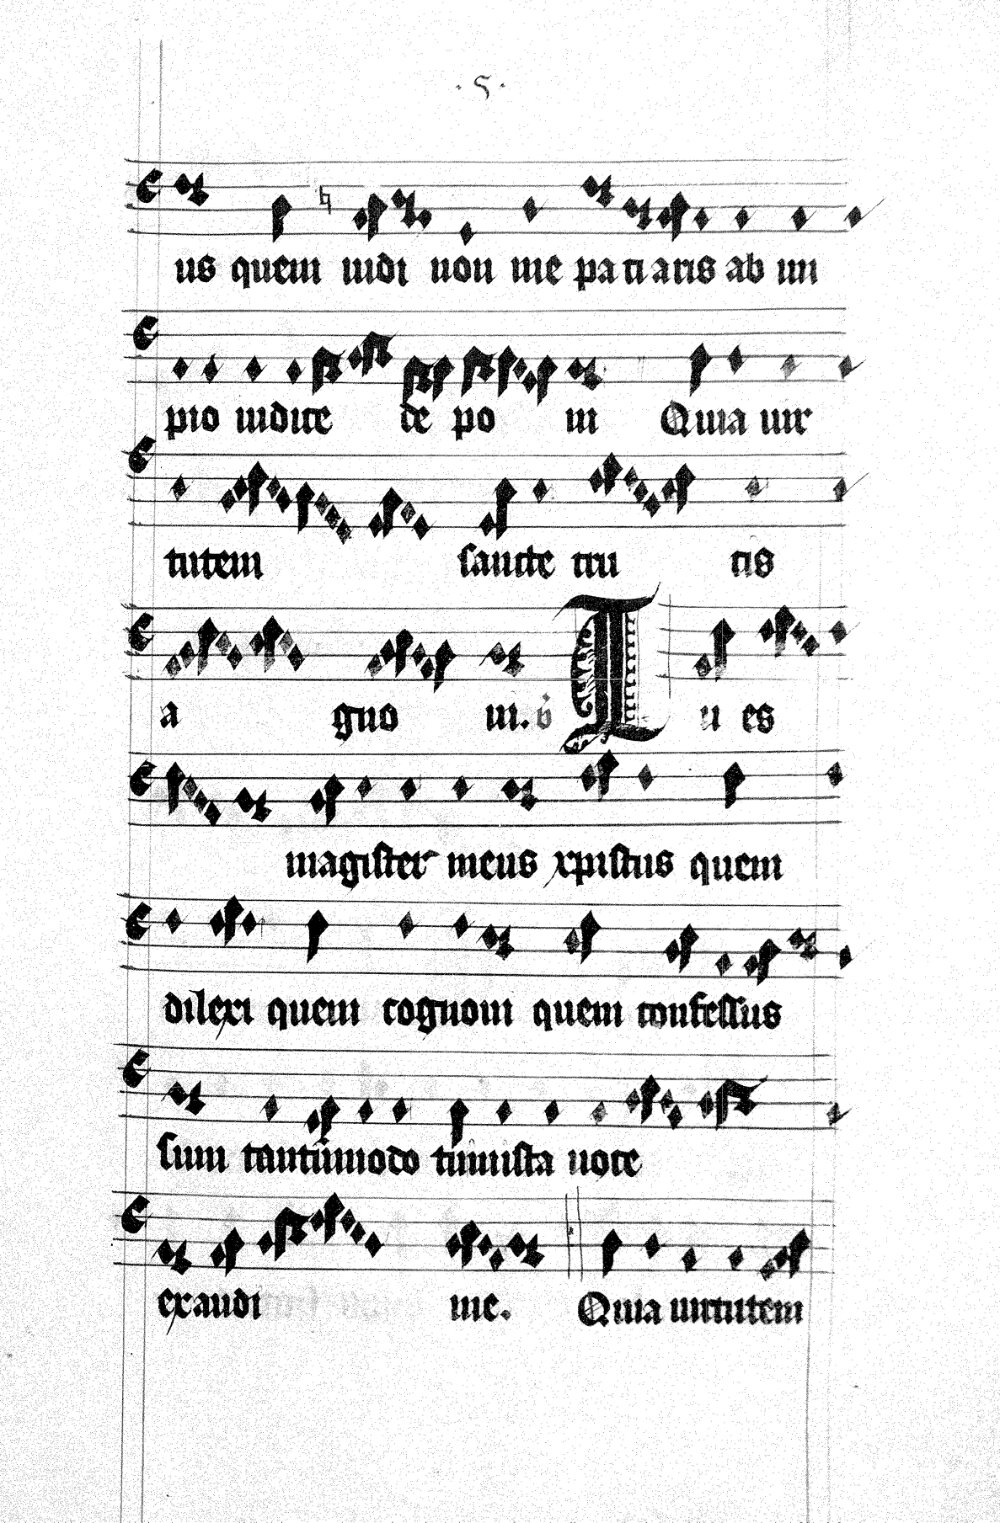 · 5 ·
us quem uidi non me pa ti aris ab im
pio iudice de po ni Quia uir
tutem sancte cru cis
a gno ui. v̇ Tu es
magister meus xpistus quem
dilexi quem cognoui quem confessus
sum tantūmodo tu in ista uoce
exaudi me. Quia uirtutem